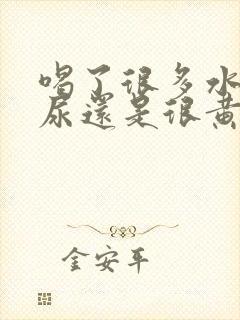 喝了很多水
尿還是很黃
金安平